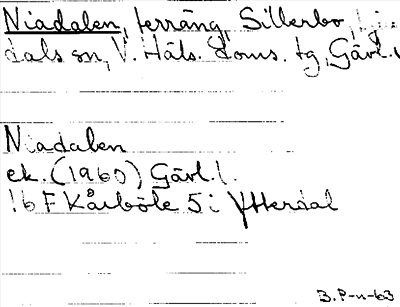 Niadalen, terräng, Sillerbo, Lju-
dals sn, V. Häls. doms. tg, Gävl. l
Niadalen
ek. (1960), Gävl. l.
16 F Kårböle 5 i Ytterdal
B. P-n-63